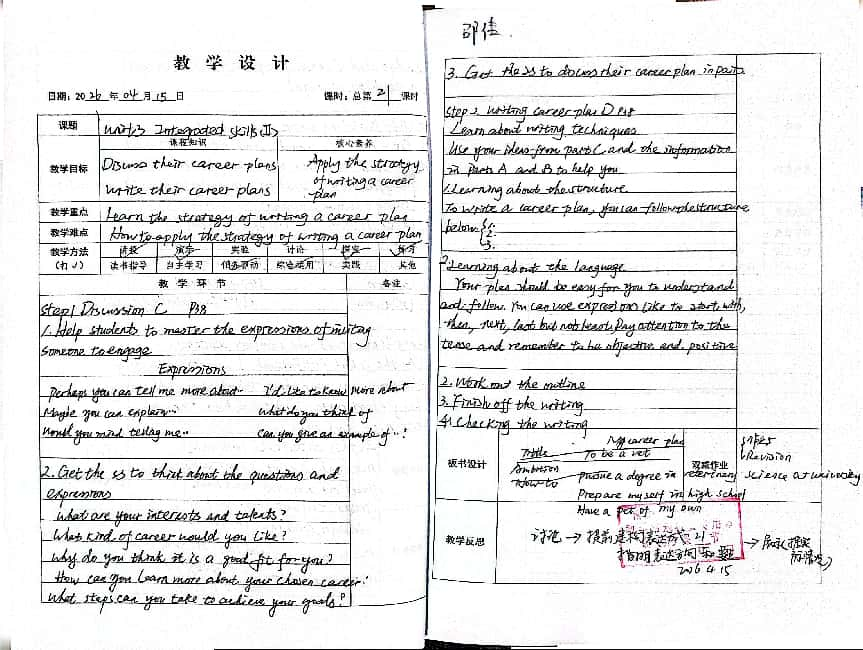 教 学 设 计
日期: 2026 年 04 月 15 日 课时: 总第 21 课时
课题 Unit3 Integrated skills(II)
教学目标 课程知识 核心素养
Discuss their career plans
write their career plans
Apply the strategy
of writing a career
plan
教学重点 Learn the strategy of writing a career plan
教学难点 How to apply the strategy of writing a career plan
教学方法 讲授 演示 实验 讨论 探究 练习
(打√) 读书指导 自主学习 情感驱动 综合运用 实践 其他
教 学 环 节 备注
Step1 Discussion C P38
1. Help students to master the expressions of inviting
someone to engage
Expressions
Perhaps you can tell me more about… I'd like to know more about
Maybe you can explain… What do you think of
Would you mind telling me… Can you give an example of…?
2. Get the ss to think about the questions and
expressions
What are your interests and talents?
What kind of career would you like?
Why do you think it is a good fit for you?
How can you learn more about your chosen career?
What steps can you take to achieve your goals?
邵佳
3. Get the ss to discuss their career plan in pairs
Step 2 Writing career plan D P38
Learn about writing techniques
Use your ideas from part C and the information
in Parts A and B to help you
1. Learning about the structure
To write a career plan, you can follow the structure
below 1.
2.
3.
2. Learning about the language
Your plan should be easy for you to understand
and follow. You can use expressions like to start with,
then, next, last but not least. Pay attention to the
tense and remember to be objective and positive
2. Work out the outline
3. Finish off the writing
4. Checking the writing
板书设计
My career plan
Title To be a vet
Ambition
How to pursue a degree in veterinary science at university
Prepare myself in high school
Have a pet of my own
双减作业
Revision
教学反思
讨论 → 提前建构表达方式
2026.4.15